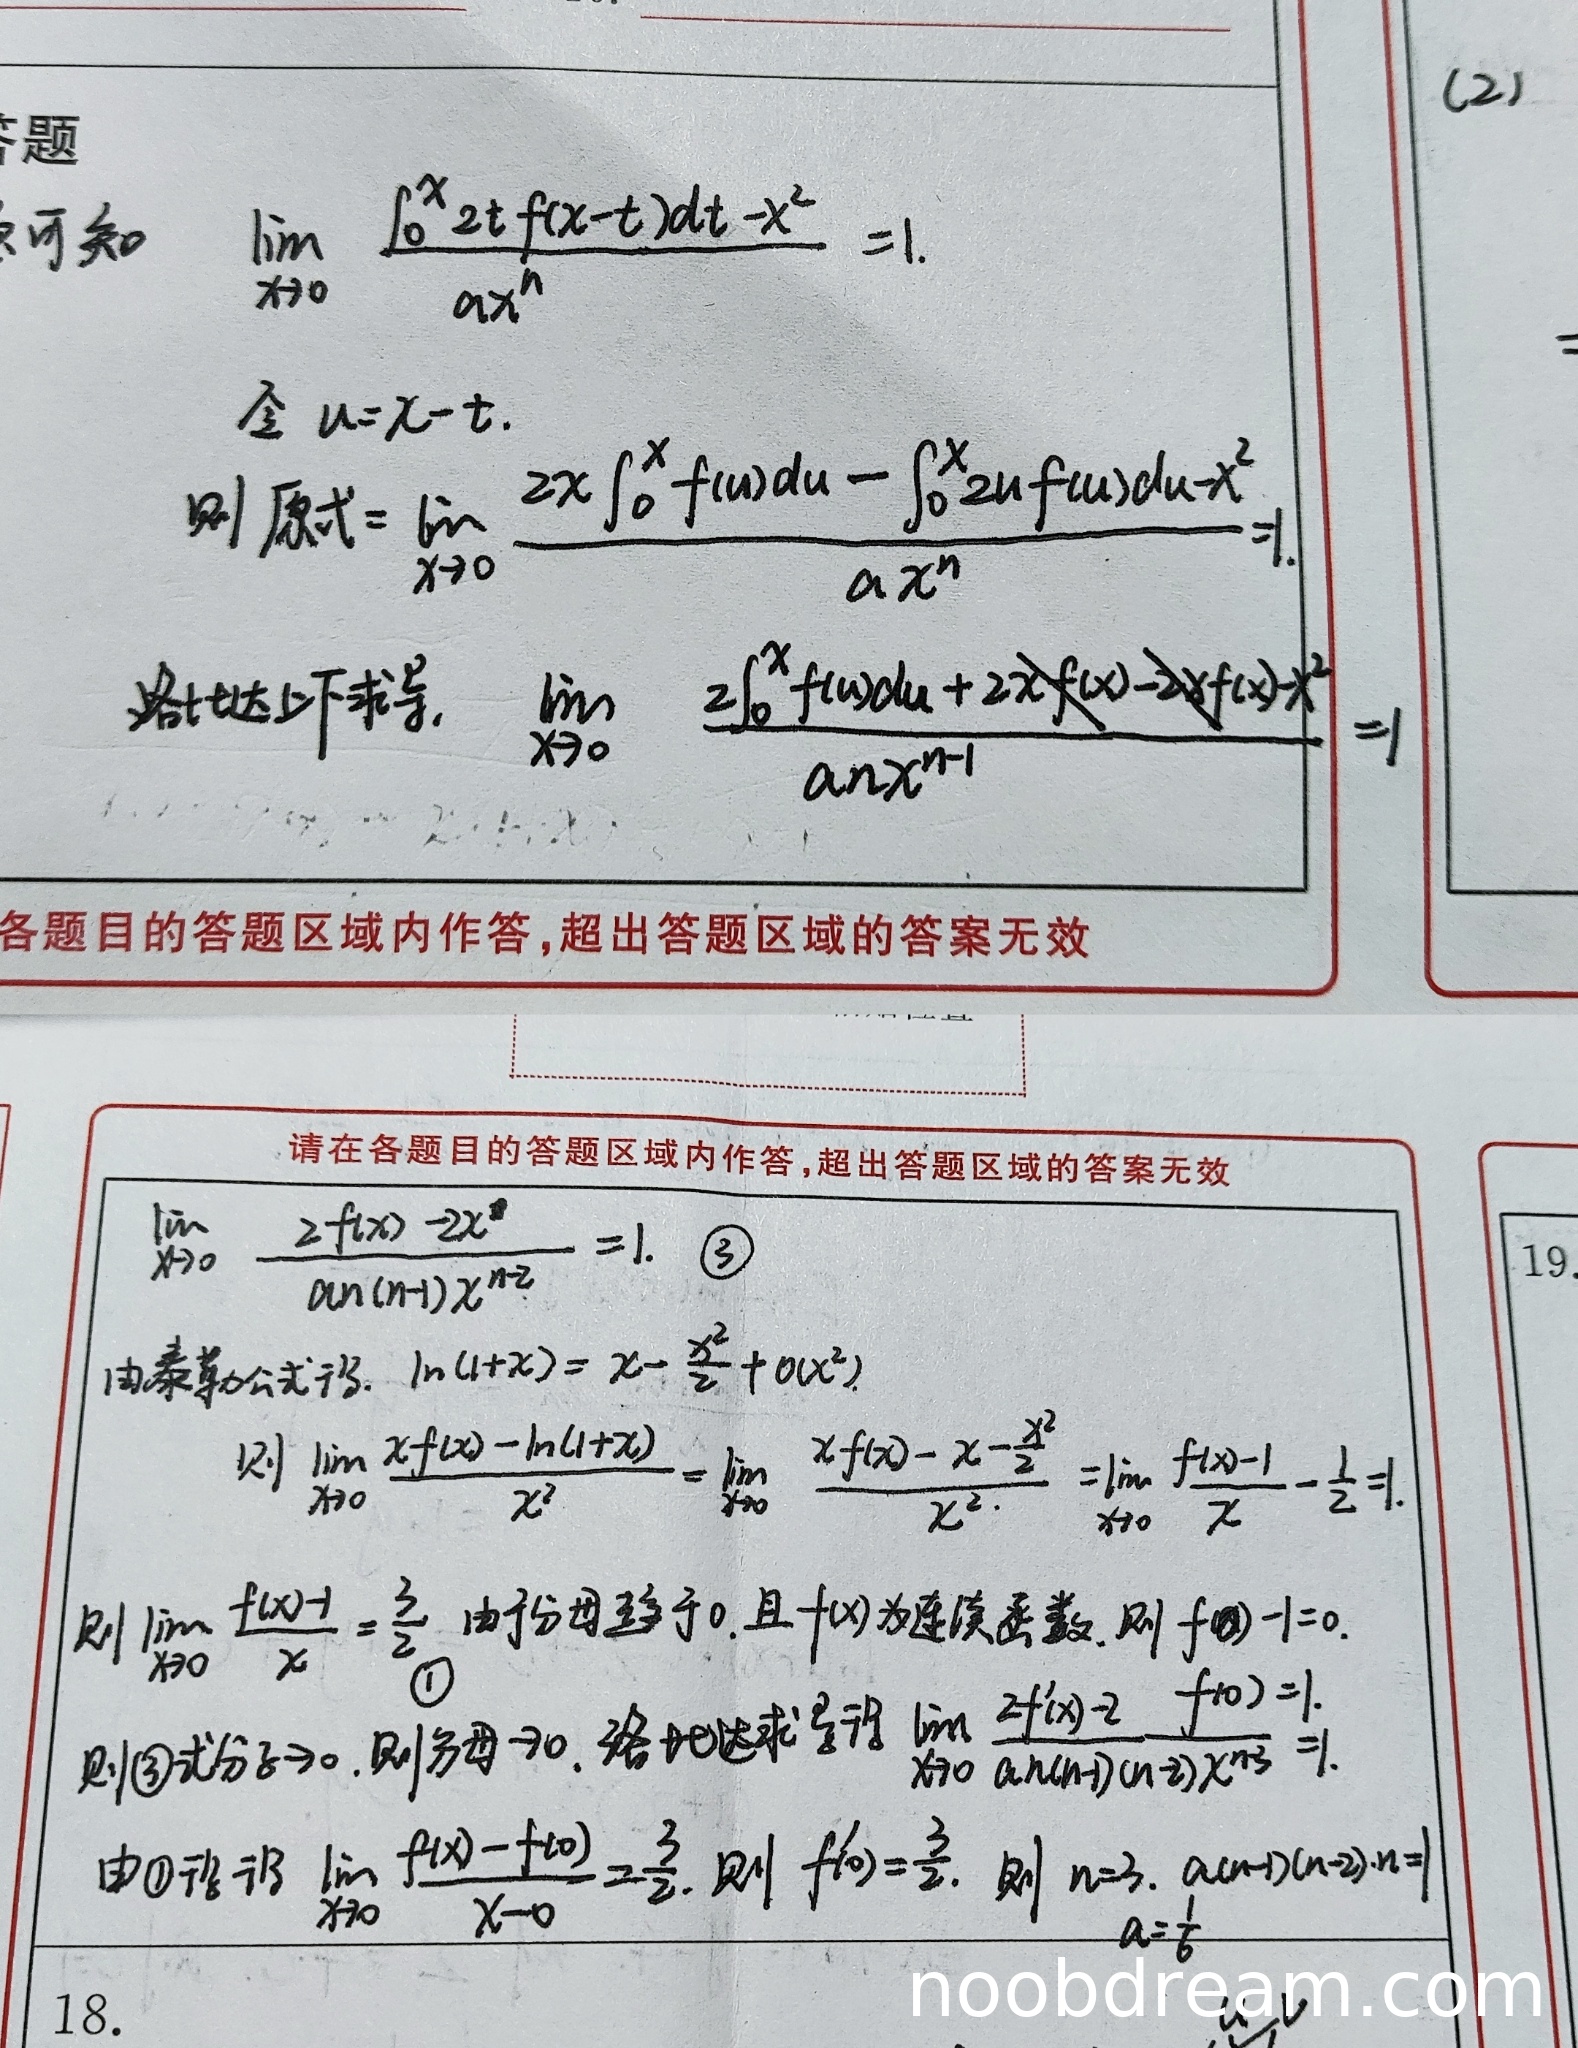 答题
可知 lim x→0 ∫₀ˣ 2t f(x-t)dt -x² / axⁿ =1.
(2)
=
令 u=x-t.
则原式= lim x→0 2x∫₀ˣ f(u)du - ∫₀ˣ 2u f(u)du-x² / axⁿ =1.
洛比达上下求导. lim x→0 2∫₀ˣ f(u)du + 2xf(x) -2xf(x)-x² / anxⁿ⁻¹ =1
各题目的答题区域内作答,超出答题区域的答案无效
请在各题目的答题区域内作答,超出答题区域的答案无效
lim x→0 2f(x) -2x / an(n-1)xⁿ⁻² =1. ③
19.
由泰勒公式得. ln(1+x)= x- x²/2 +o(x²).
则 lim x→0 xf(x)-ln(1+x) / x² = lim x→0 xf(x)- x- x²/2 / x². = lim x→0 f(x)-1 / x - 1/2 =1.
则 lim x→0 f(x)-1 / x = 3/2 ① 由于分母趋于0.且f(x)为连续函数.则 f(0)-1=0.
f(0)=1.
则③式分子→0.则分母→0.洛比达求导得 lim x→0 2f'(x)-2 / an(n-1)(n-2)xⁿ⁻³ =1.
由①式得 lim x→0 f(x)-f(0) / x-0 = 3/2. 则 f'(0)= 3/2. 则 n=3. a(n-1)(n-2)·n=1
a= 1/6
18.
noobdream.com
u v